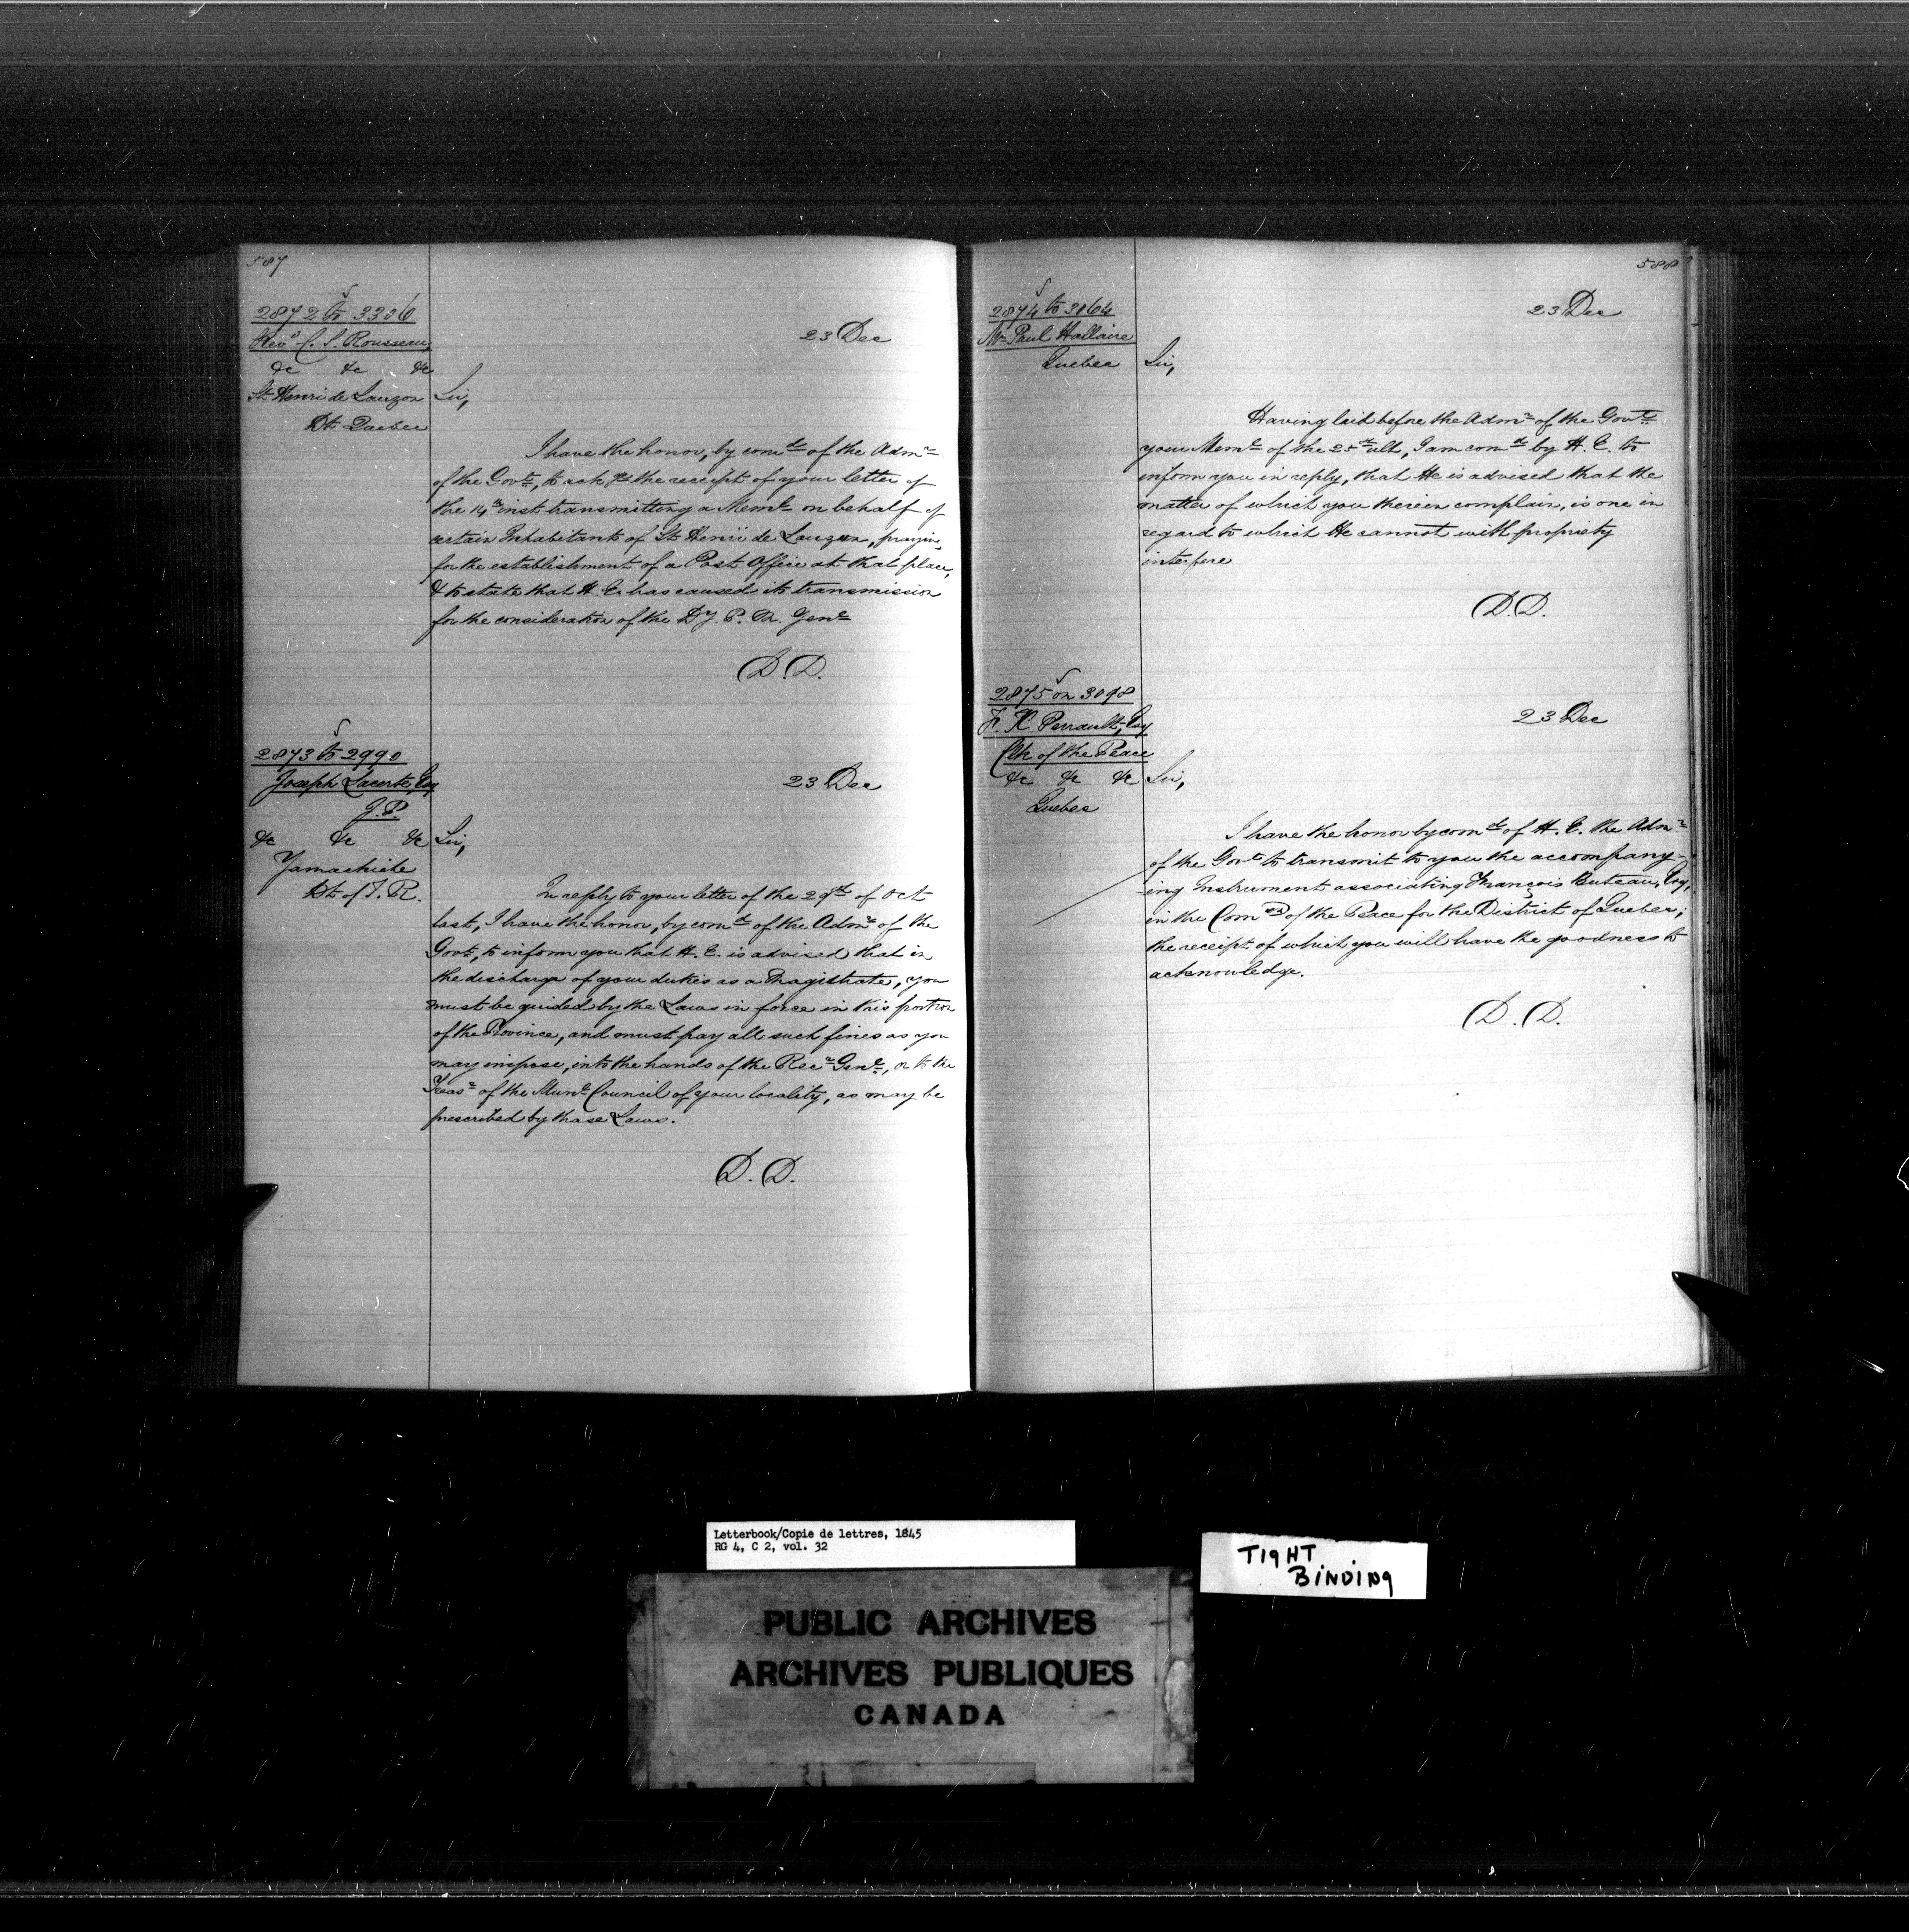 587
2872 to 3306
Revd C. S. Rousseau,
&c &c &c
St Henri de Lauzon
Dt Quebec
23 Dec
Sir,
I have the honor, by comd of the Admr
of the Govt, to ackge the receipt of your letter of
the 14th inst transmitting a Meml on behalf of
certain Inhabitants of St Henri de Lauzon, praying
for the establishment of a Post Office at that place,
& to state that H. E. has caused its transmission
for the consideration of the Dy. P. M. Genl
D.D.
2873 to 2990
Joseph Lacerte, Esq
J.P.
&c &c &c
Yamachiche
Dt of T. R.
23 Dec
Sir,
In reply to your letter of the 29th of Oct
last, I have the honor, by comd of the Admr of the
Govt, to inform you that H. E. is advised that in
the discharge of your duties as a Magistrate, you
must be guided by the Laws in force in this portion
of the Province, and must pay all such fines as you
may impose, into the hands of the Recr Genl, or to the
Treasr of the Munl Council of your locality, as may be
prescribed by those Laws.
D. D.
588
2874 to 3064
Mr Paul Hallaire
Quebec
23 Dec
Sir,
Having laid before the Admr of the Govt
your Meml of the 25th ult, I am comd by H. E. to
inform you in reply, that He is advised that the
matter of which you therein complain, is one in
regard to which He cannot with propriety
interfere
D.D.
2875 on 3098
F. X. Perrault, Esq
Clk of the Peace
&c &c &c
Quebec
23 Dec
Sir,
I have the honor by comd of H. E. the Admr
of the Govt to transmit to you the accompany-
ing Instrument associating François Buteau, Esq,
in the Comn of the Peace for the District of Quebec;
the receipt of which you will have the goodness to
acknowledge.
D. D.
Letterbook/Copie de lettres, 1845
RG 4, C 2, vol. 32
TIGHT
BINDING
PUBLIC ARCHIVES
ARCHIVES PUBLIQUES
CANADA